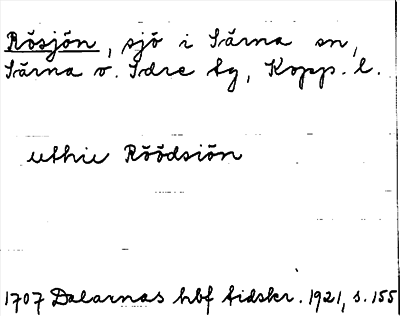 Rösjön, sjö i Särna sn,
Särna o. Idre tg, Kopp. l.
uthie Röödsiön
1707 Dalarnas hbf tidskr. 1921, s. 155